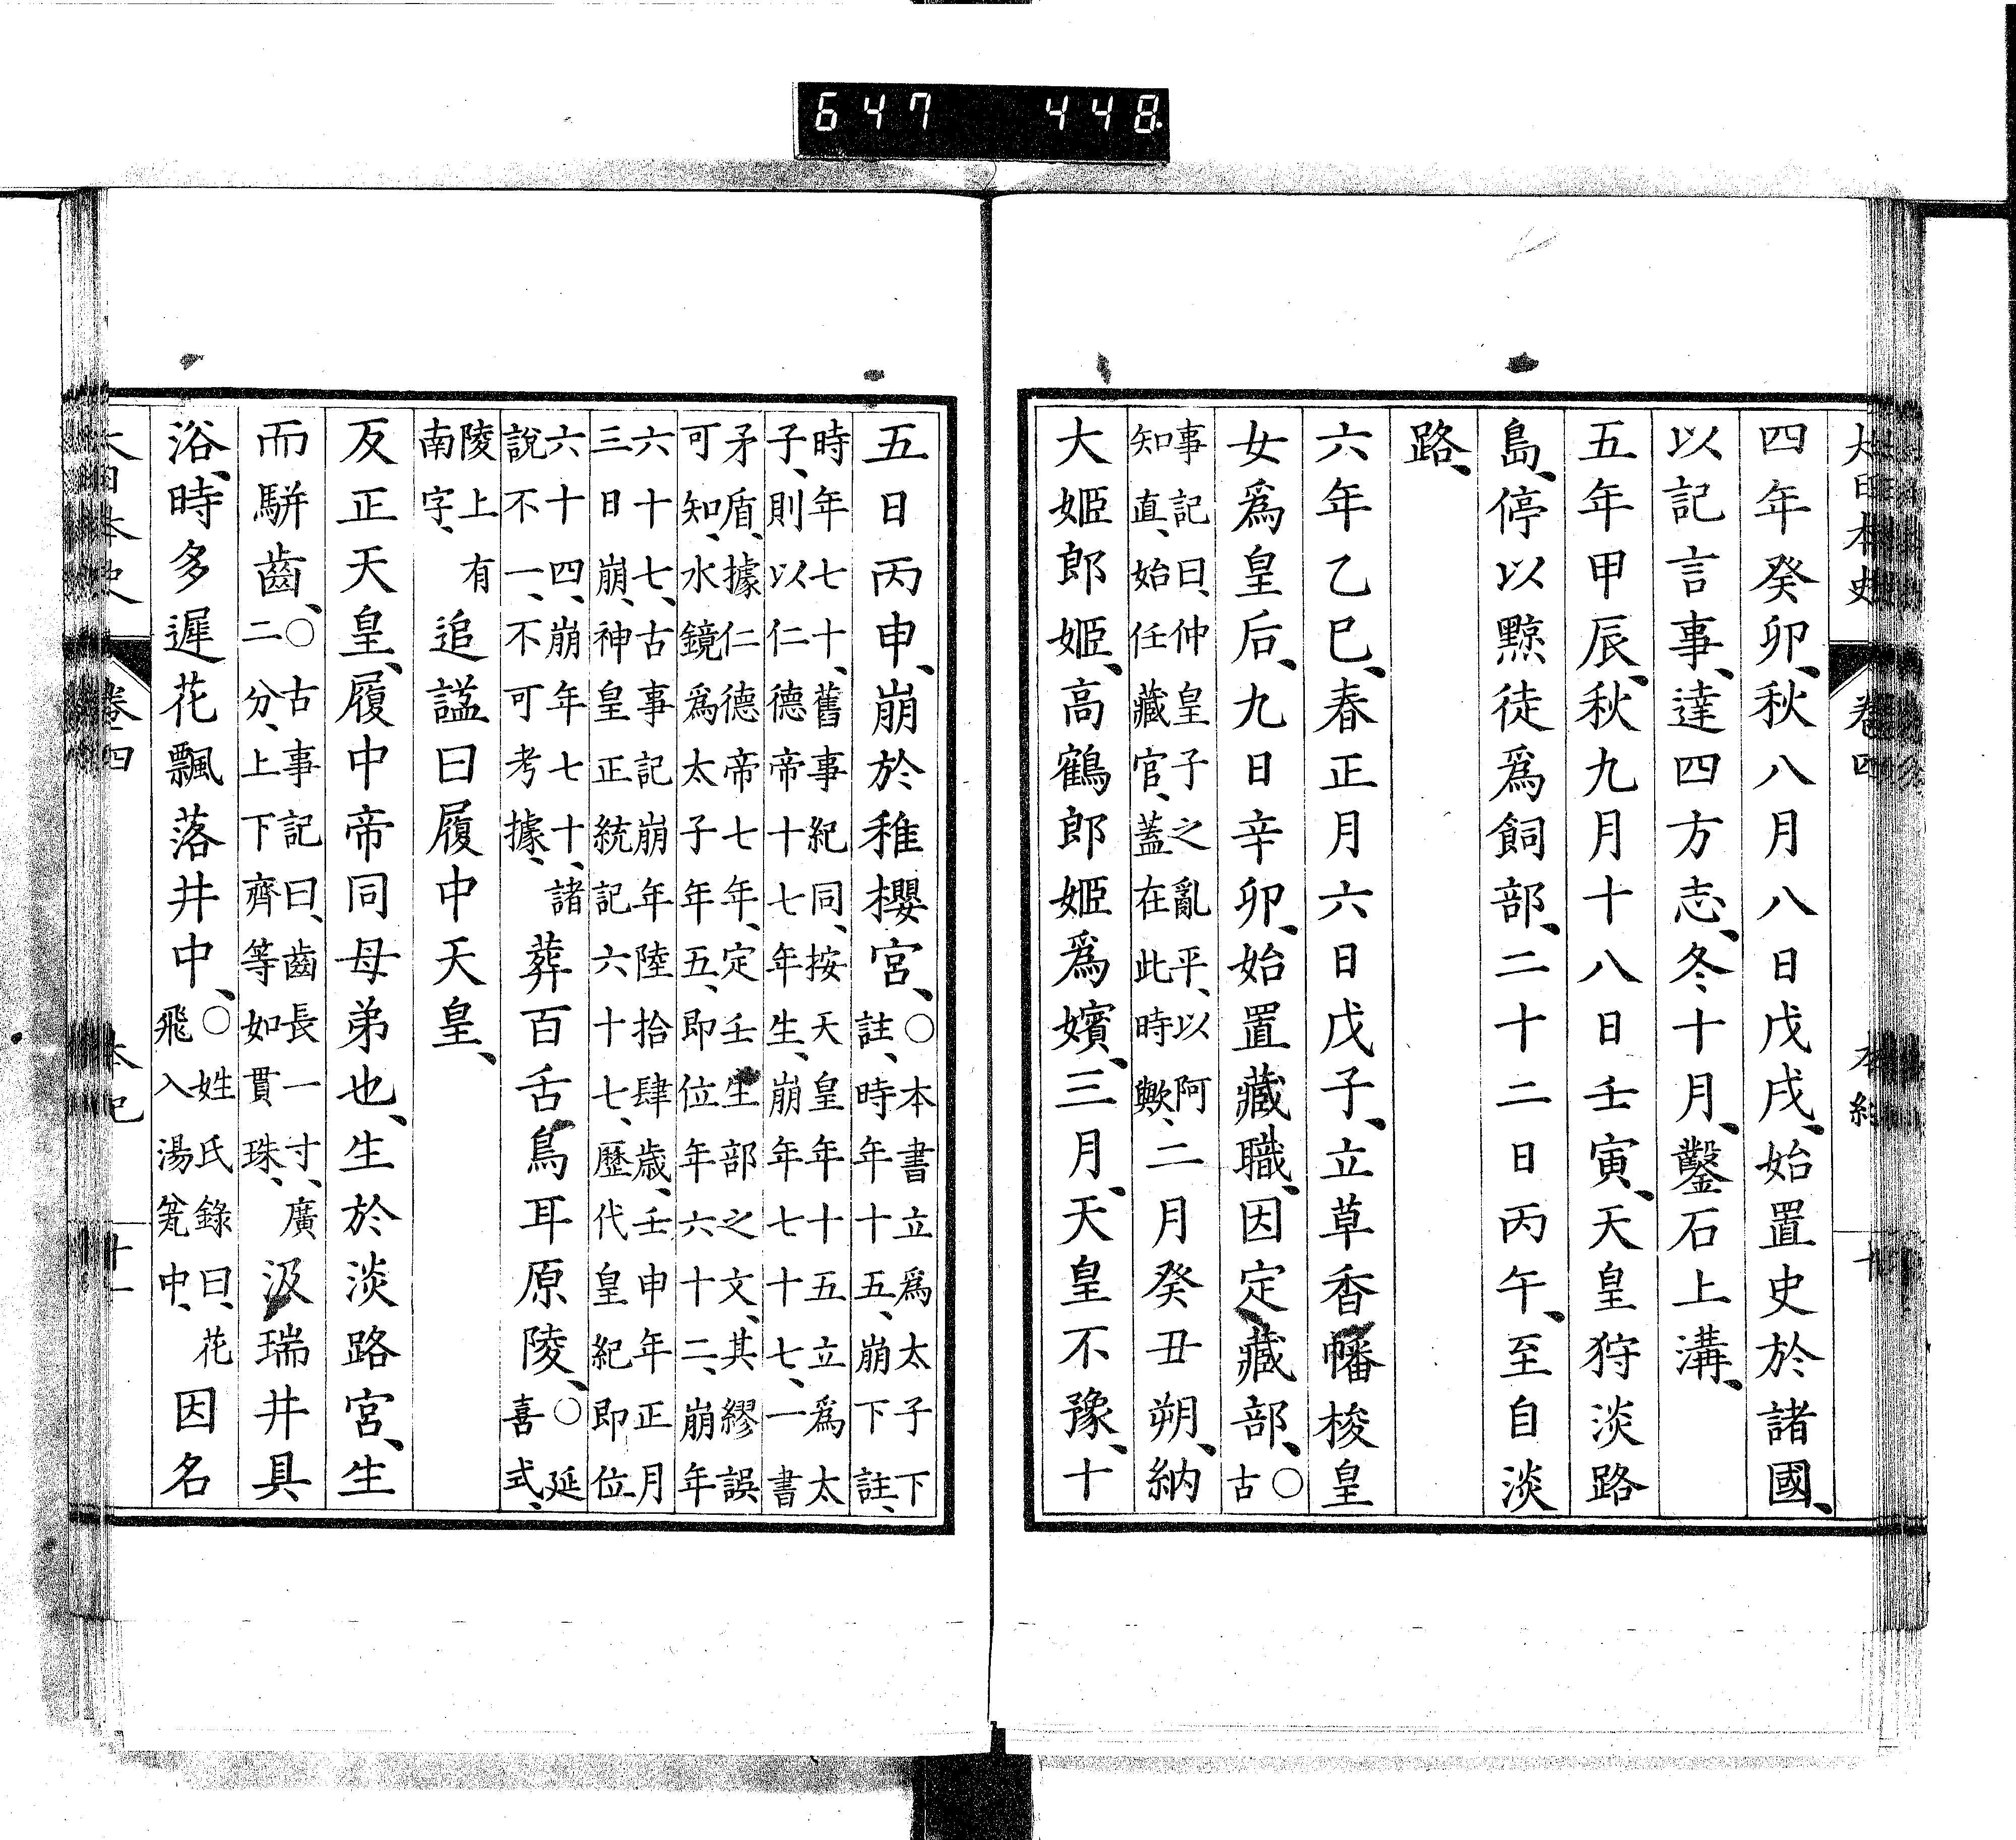 大日本史 卷四 本紀 十
四年癸卯、秋八月八日戊戌、始置史於諸國、
以記言事、達四方志、冬十月、鑿石上溝、
五年甲辰、秋九月十八日壬寅、天皇狩淡路
島、停以黥徒爲飼部、二十二日丙午、至自淡
路、
六年乙巳、春正月六日戊子、立草香幡梭皇
女爲皇后、九日辛卯、始置藏職、因定藏部、○古
事記曰、仲皇子之亂平、以阿知直、始任藏官、蓋在此時歟、二月癸丑朔、納
大姬郎姬、高鶴郎姬爲嬪、三月、天皇不豫、十
五日丙申、崩於稚櫻宮、○本書立爲太子下註、時年十五、崩下註、
時年七十、舊事紀同、按天皇年十五立爲太子、則以仁德帝十七年生、崩年七十七、一書
矛盾、據仁德帝七年、定壬生部之文、其繆誤可知、水鏡爲太子年五、即位年六十二、崩年
六十七、古事記崩年陸拾肆歲、壬申年正月三日崩、神皇正統記六十七、歷代皇紀即位
六十四、崩年七十、諸說不一、不可考據、葬百舌鳥耳原陵、○延喜式、
陵上有南字、追謚曰履中天皇、
反正天皇、履中帝同母弟也、生於淡路宮、生
而駢齒、○古事記曰、齒長一寸、廣二分、上下齊等如貫珠、汲瑞井具
浴、時多遲花飄落井中、○姓氏錄曰、花飛入湯瓮中、因名
大日本史 卷四 本紀 十一
647 448